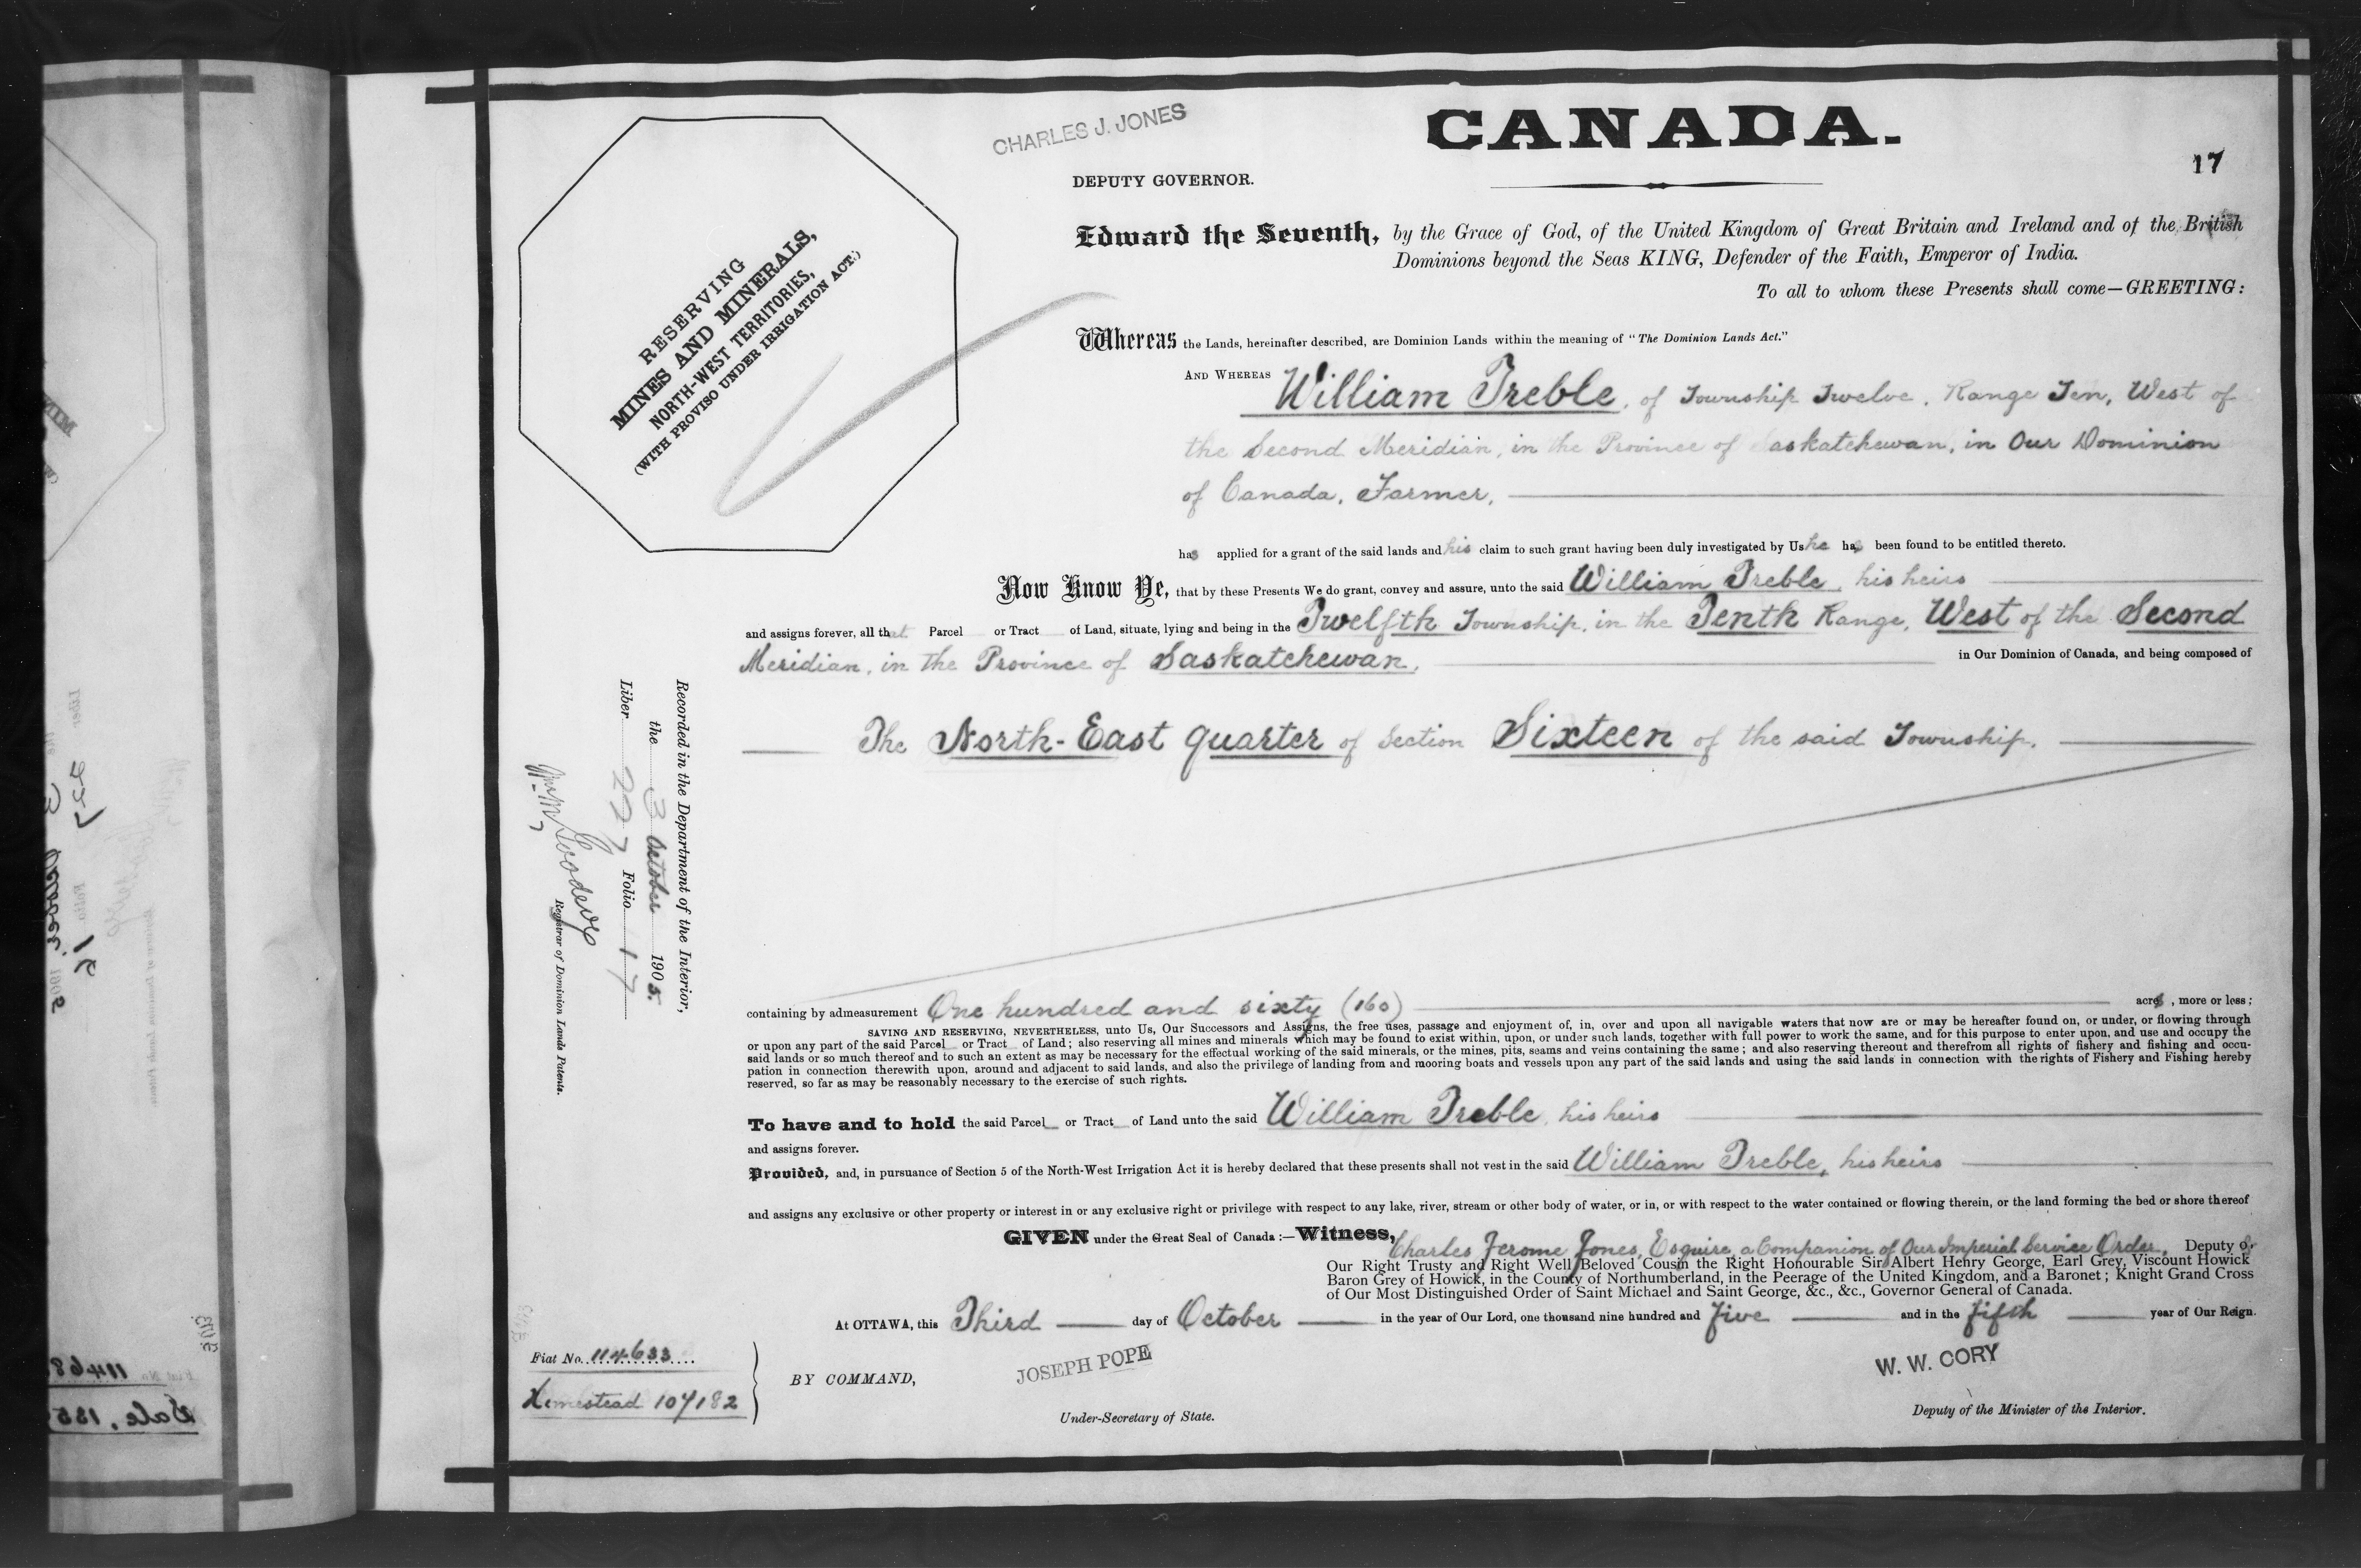 CHARLES J. JONES
CANADA.
17
DEPUTY GOVERNOR.
RESERVING
MINES AND MINERALS,
NORTH-WEST TERRITORIES,
(WITH PROVISO UNDER IRRIGATION ACT.)
Edward the Seventh, by the Grace of God, of the United Kingdom of Great Britain and Ireland and of the British
Dominions beyond the Seas KING, Defender of the Faith, Emperor of India.
To all to whom these Presents shall come—GREETING:
Whereas the Lands, hereinafter described, are Dominion Lands within the meaning of "The Dominion Lands Act."
AND WHEREAS William Treble, of Township Twelve, Range Ten, West of
the Second Meridian, in the Province of Saskatchewan, in Our Dominion
of Canada, Farmer,
has applied for a grant of the said lands and his claim to such grant having been duly investigated by Us he has been found to be entitled thereto.
Now Know Ye, that by these Presents We do grant, convey and assure, unto the said William Treble, his heirs
and assigns forever, all that Parcel or Tract of Land, situate, lying and being in the Twelfth Township, in the Tenth Range, West of the Second
Meridian, in the Province of Saskatchewan, in Our Dominion of Canada, and being composed of
The North-East quarter of Section Sixteen of the said Township.
Recorded in the Department of the Interior,
the 3 October 1905.
Liber 227 Folio 17
Registrar of Dominion Lands Patents.
containing by admeasurement One hundred and sixty (160) acres, more or less;
SAVING AND RESERVING, NEVERTHELESS, unto Us, Our Successors and Assigns, the free uses, passage and enjoyment of, in, over and upon all navigable waters that now are or may be hereafter found on, or under, or flowing through
or upon any part of the said Parcel or Tract of Land; also reserving all mines and minerals which may be found to exist within, upon, or under such lands, together with full power to work the same, and for this purpose to enter upon, and use and occupy the
said lands or so much thereof and to such an extent as may be necessary for the effectual working of the said minerals, or the mines, pits, seams and veins containing the same; and also reserving thereout and therefrom all rights of fishery and fishing and occu-
pation in connection therewith upon, around and adjacent to said lands, and also the privilege of landing from and mooring boats and vessels upon any part of the said lands and using the said lands in connection with the rights of Fishery and Fishing hereby
reserved, so far as may be reasonably necessary to the exercise of such rights.
To have and to hold the said Parcel or Tract of Land unto the said William Treble, his heirs
and assigns forever.
Provided, and, in pursuance of Section 5 of the North-West Irrigation Act it is hereby declared that these presents shall not vest in the said William Treble, his heirs
and assigns any exclusive or other property or interest in or any exclusive right or privilege with respect to any lake, river, stream or other body of water, or in, or with respect to the water contained or flowing therein, or the land forming the bed or shore thereof
GIVEN under the Great Seal of Canada:—Witness, Charles Jerome Jones, Esquire, a Companion of Our Imperial Service Order, Deputy of
Our Right Trusty and Right Well Beloved Cousin the Right Honourable Sir Albert Henry George, Earl Grey, Viscount Howick
Baron Grey of Howick, in the County of Northumberland, in the Peerage of the United Kingdom, and a Baronet; Knight Grand Cross
of Our Most Distinguished Order of Saint Michael and Saint George, &c., &c., Governor General of Canada.
At OTTAWA, this Third day of October in the year of Our Lord, one thousand nine hundred and five and in the fifth year of Our Reign.
Fiat No. 114633
Homestead 107182
BY COMMAND,
JOSEPH POPE
Under-Secretary of State.
W. W. CORY
Deputy of the Minister of the Interior.